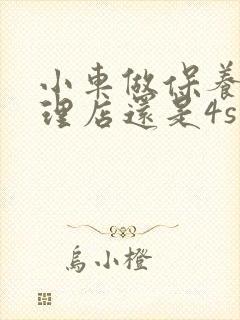 小車做保養
理店還是4s
烏小橙